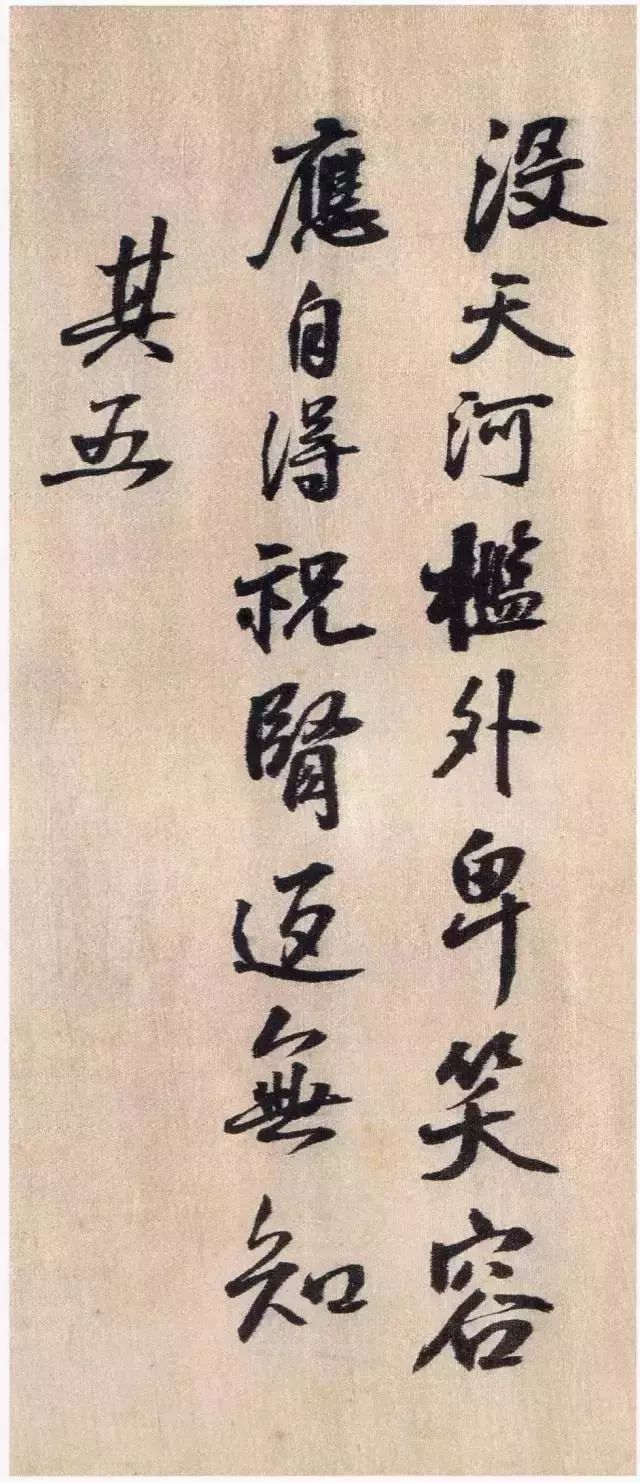 没天河檻外卑笑容
應自得祝腎返無知
其五